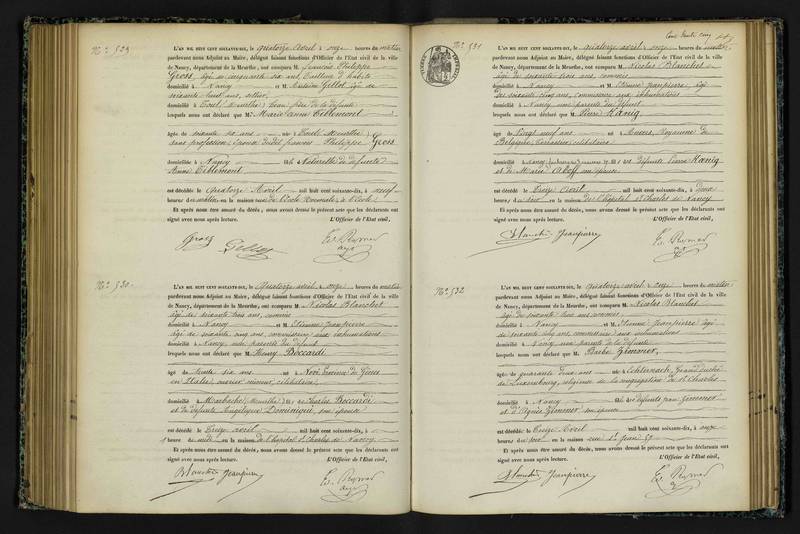 N° 529
L'AN MIL HUIT CENT SOIXANTE-DIX, le quatorze avril à onze heures du matin
pardevant nous Adjoint au Maire, délégué faisant fonctions d'Officier de l'Etat civil de la ville
de Nancy, département de la Meurthe, ont comparu M. François Philippe
Gross, âgé de cinquante six ans, tailleur d'habits
domicilié à Nancy et M. Gillot âgé de
soixante huit ans,
domicilié à Toul, Meurthe, beau père de la défunte
lesquels nous ont déclaré que Me Marie anne Tiblemont
âgée de soixante six ans née à Toul, Meurthe
sans profession, épouse dudit françois Philippe Gross
domiciliée à Nancy fille Naturelle de défunte
Anne Tiblemont
est décédée le quatorze Avril mil huit cent soixante-dix, à neuf
heures du matin en la maison rue de l'Ecole Normale, à l'Ecole
Et après nous être assuré du décès, nous avons dressé le présent acte que les déclarants ont
signé avec nous après lecture. L'Officier de l'Etat civil,
Gross
N° 530
L'AN MIL HUIT CENT SOIXANTE-DIX, le quatorze avril à onze heures du matin
pardevant nous Adjoint au Maire, délégué faisant fonctions d'Officier de l'Etat civil de la ville
de Nancy, département de la Meurthe, ont comparu M. Nicolas Blanchet
âgé de soixante trois ans, commis
domicilié à Nancy et M. Etienne Jeanpierre
âgé de soixante cinq ans, commissaire aux inhumations
domicilié à Nancy, non parents du défunt
lesquels nous ont déclaré que M. Henry Boccardi
âgé de trente six ans né à Novi Province de Gênes
en Italie, ouvrier mineur, célibataire
domicilié à Marbache, Meurthe, fils de Charles Boccardi
et de défunte Angélique Dominiqui, son épouse
est décédé le treize avril mil huit cent soixante-dix, à
heure de midi en la maison de l'hôpital St Charles de Nancy
Et après nous être assuré du décès, nous avons dressé le présent acte que les déclarants ont
signé avec nous après lecture. L'Officier de l'Etat civil,
Blanchet Jeanpierre
N° 531
L'AN MIL HUIT CENT SOIXANTE-DIX, le quatorze avril à onze heures du matin
pardevant nous Adjoint au Maire, délégué faisant fonctions d'Officier de l'Etat civil de la ville
de Nancy, département de la Meurthe, ont comparu M. Nicolas Blanchet
âgé de soixante trois ans, commis
domicilié à Nancy et M. Etienne Jeanpierre, âgé
de soixante cinq ans, commissaire aux inhumations
domicilié à Nancy non parents du défunt
lesquels nous ont déclaré que M. Pierre Kanig
âgé de Vingt neuf ans né à Anvers, Royaume de
Belgique, célibataire
domicilié à Nancy fils de défunts Pierre Kanig
et de Marie son épouse
est décédé le treize avril mil huit cent soixante-dix, à deux
heures du soir en la maison de l'hôpital St Charles de Nancy
Et après nous être assuré du décès, nous avons dressé le présent acte que les déclarants ont
signé avec nous après lecture. L'Officier de l'Etat civil,
Blanchet Jeanpierre
N° 532
L'AN MIL HUIT CENT SOIXANTE-DIX, le quatorze avril à onze heures du matin
pardevant nous Adjoint au Maire, délégué faisant fonctions d'Officier de l'Etat civil de la ville
de Nancy, département de la Meurthe, ont comparu M. Nicolas Blanchet
âgé de soixante trois ans, commis
domicilié à Nancy et M. Etienne Jeanpierre âgé
de soixante cinq ans, commissaire aux inhumations
domicilié à Nancy, non parents de la défunte
lesquels nous ont déclaré que M. Barbe Zimmer
âgée de quarante deux ans née à Echternach, Grand Duché
de Luxembourg, religieuse de la congrégation de St Charles
domiciliée à Nancy fille de défunts Jean Zimmer
et d'Agnès Zimmer son épouse
est décédée le treize Avril mil huit cent soixante-dix, à onze
heures du soir en la maison rue St Jean 57
Et après nous être assuré du décès, nous avons dressé le présent acte que les déclarants ont
signé avec nous après lecture. L'Officier de l'Etat civil,
Blanchet Jeanpierre